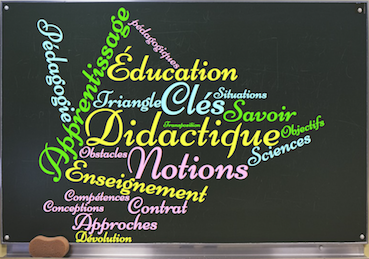 Pédagogie
Apprentissage
pédagogiques
Éducation
Triangle Clés Situations
Savoir
Transposition
Didactique Objectifs
Sciences
Obstacles Notions
Enseignement
Compétences
Conceptions Contrat
Approches
Dévolution